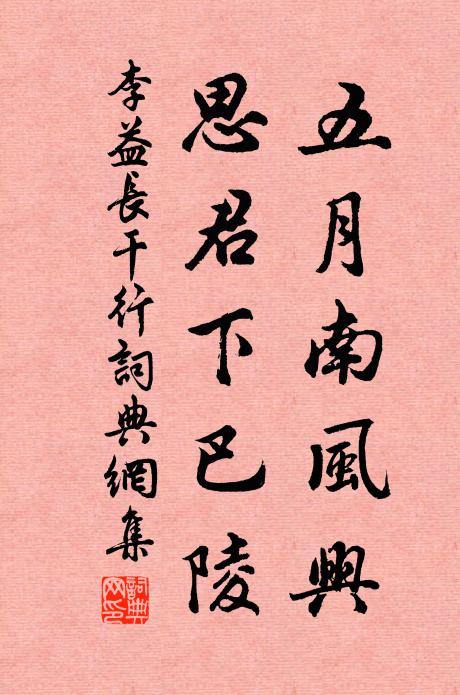 五月南風興
思君下巴陵
李益長干行詞典網集
詞典
网印